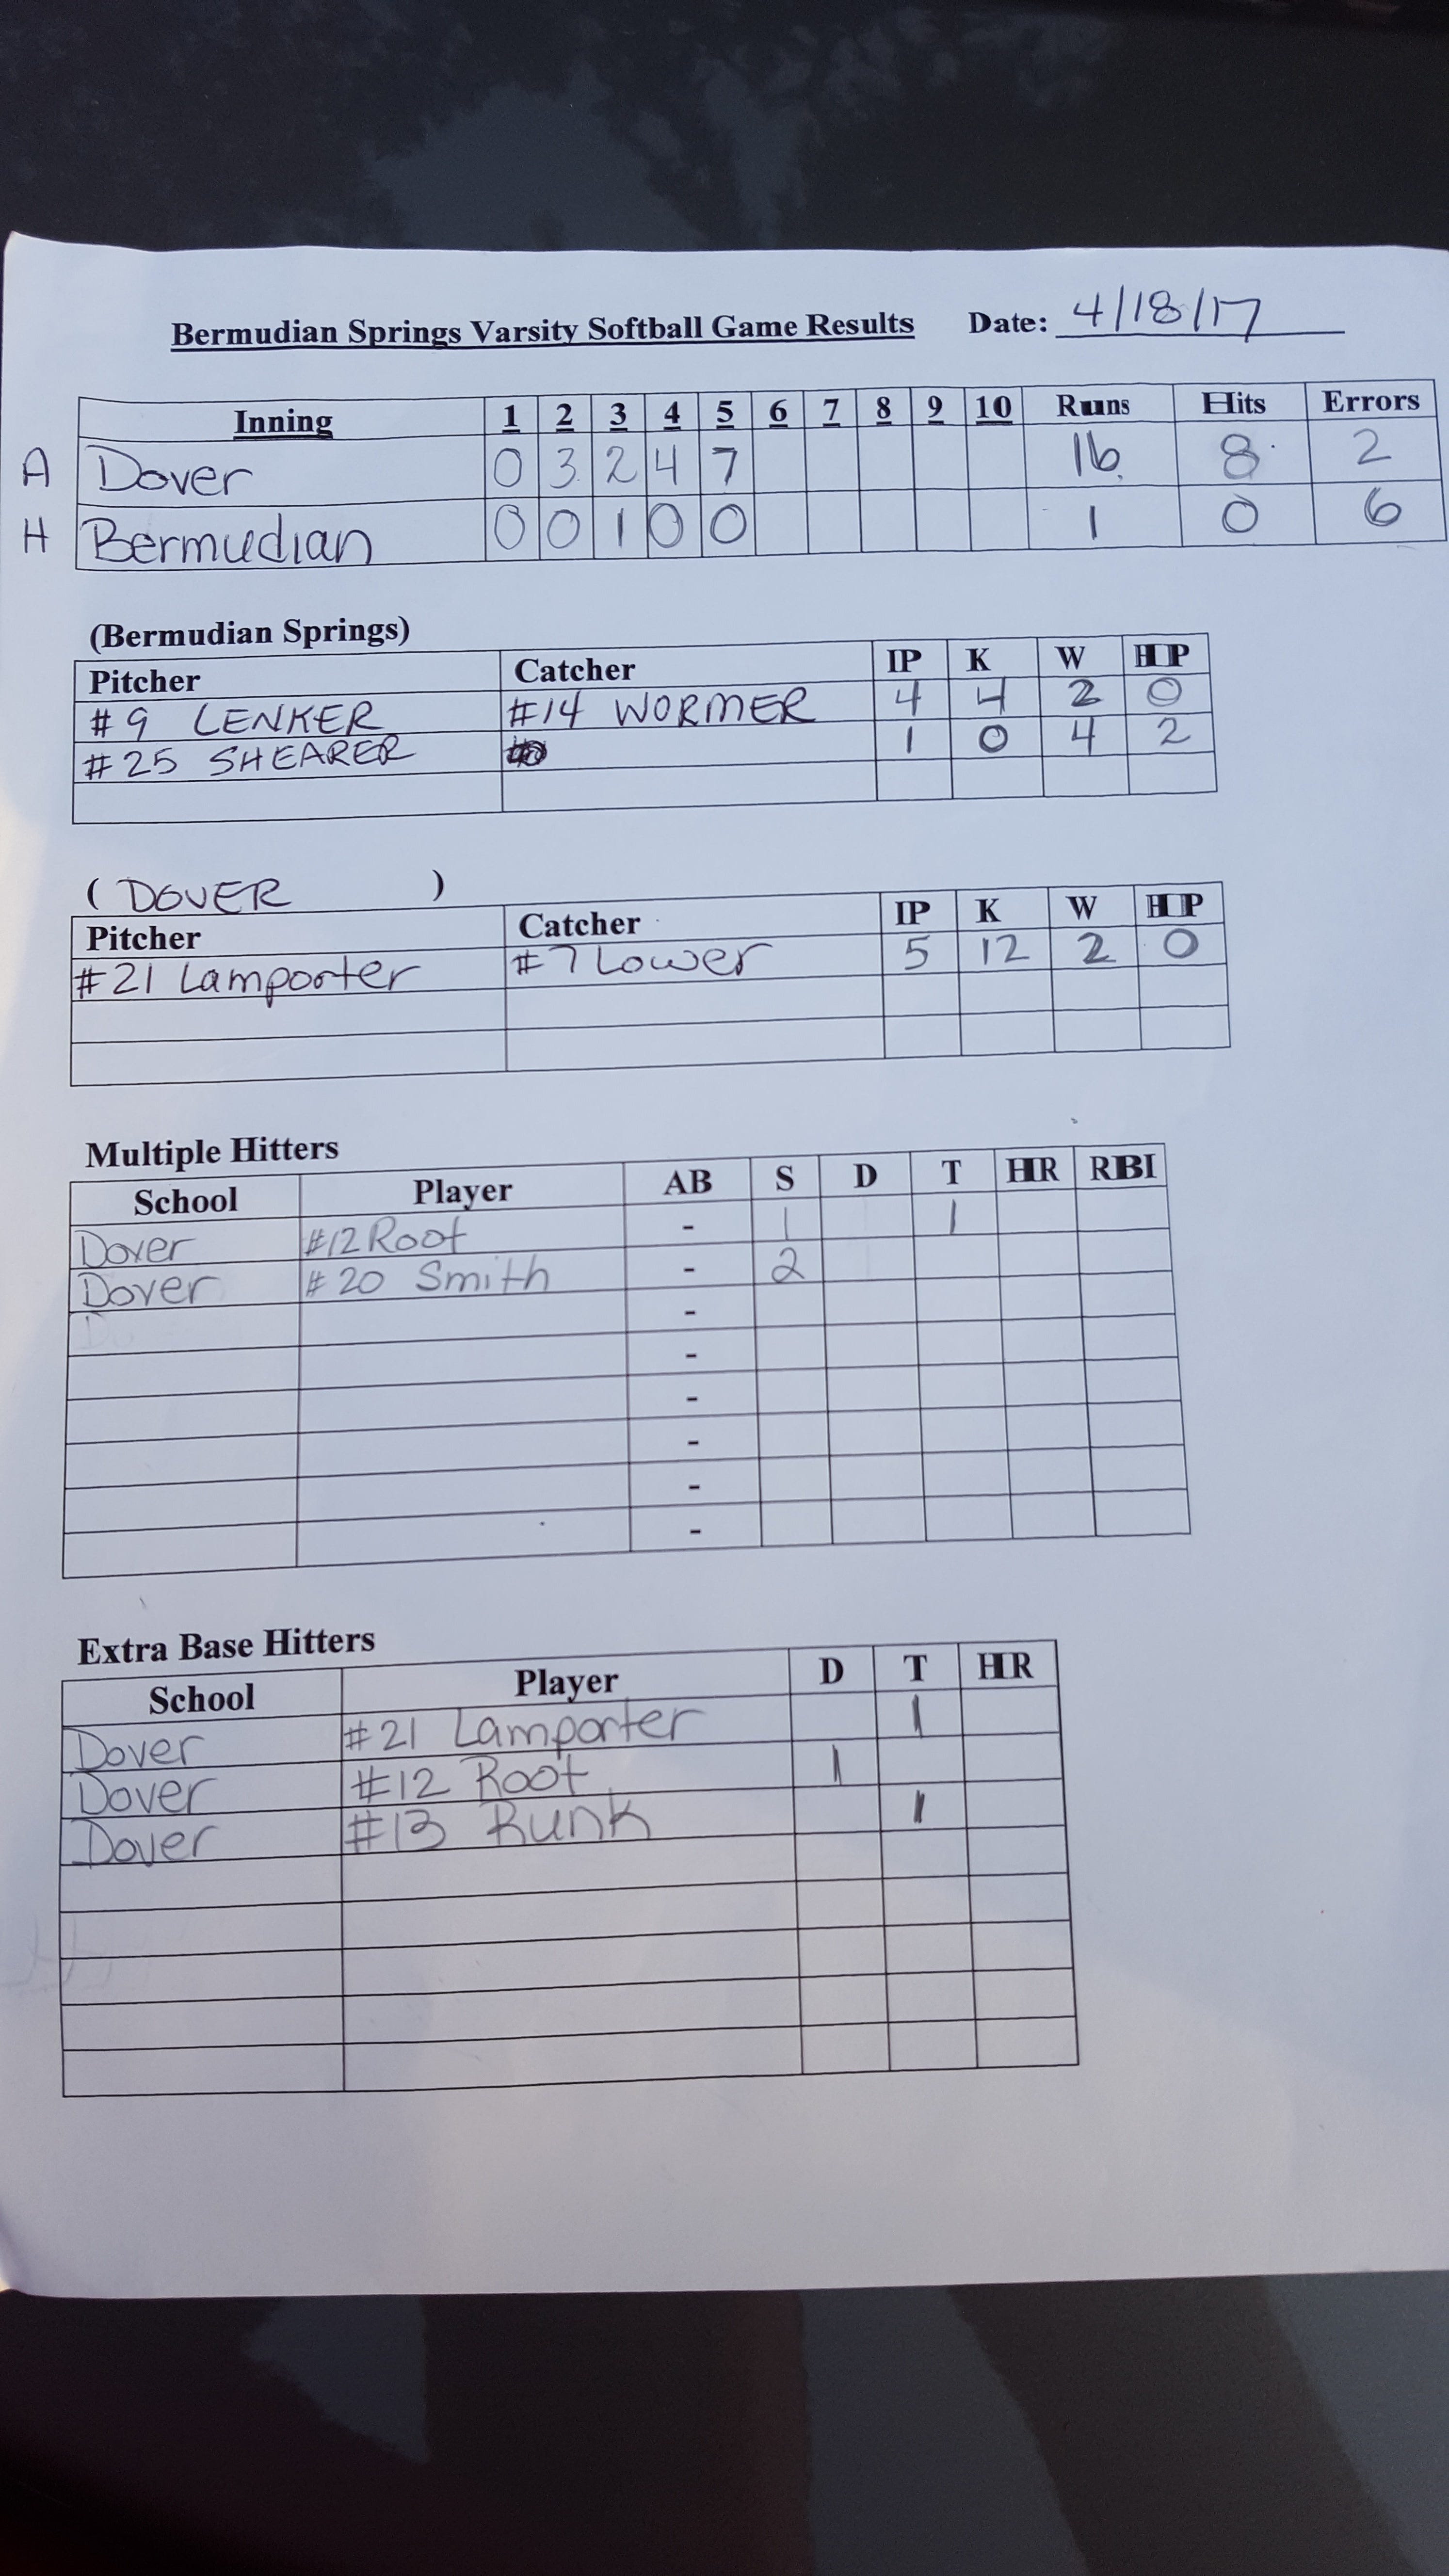 Bermudian Springs Varsity Softball Game Results Date: 4/18/17
Inning 1 2 3 4 5 6 7 8 9 10 Runs Hits Errors
A Dover 0 3 2 4 7 16 8 2
H Bermudian 0 0 1 0 0 1 0 6
(Bermudian Springs)
Pitcher Catcher IP K W HP
#9 LENKER #14 WORMER 4 4 2 0
#25 SHEARER 1 0 4 2
( DOVER )
Pitcher Catcher IP K W HP
#21 Lamporter #7 Lower 5 12 2 0
Multiple Hitters
School Player AB S D T HR RBI
Dover #12 Root - 1 1
Dover #20 Smith - 2
-
-
-
-
-
-
Extra Base Hitters
School Player D T HR
Dover #21 Lamporter 1
Dover #12 Root 1
Dover #13 Runk 1